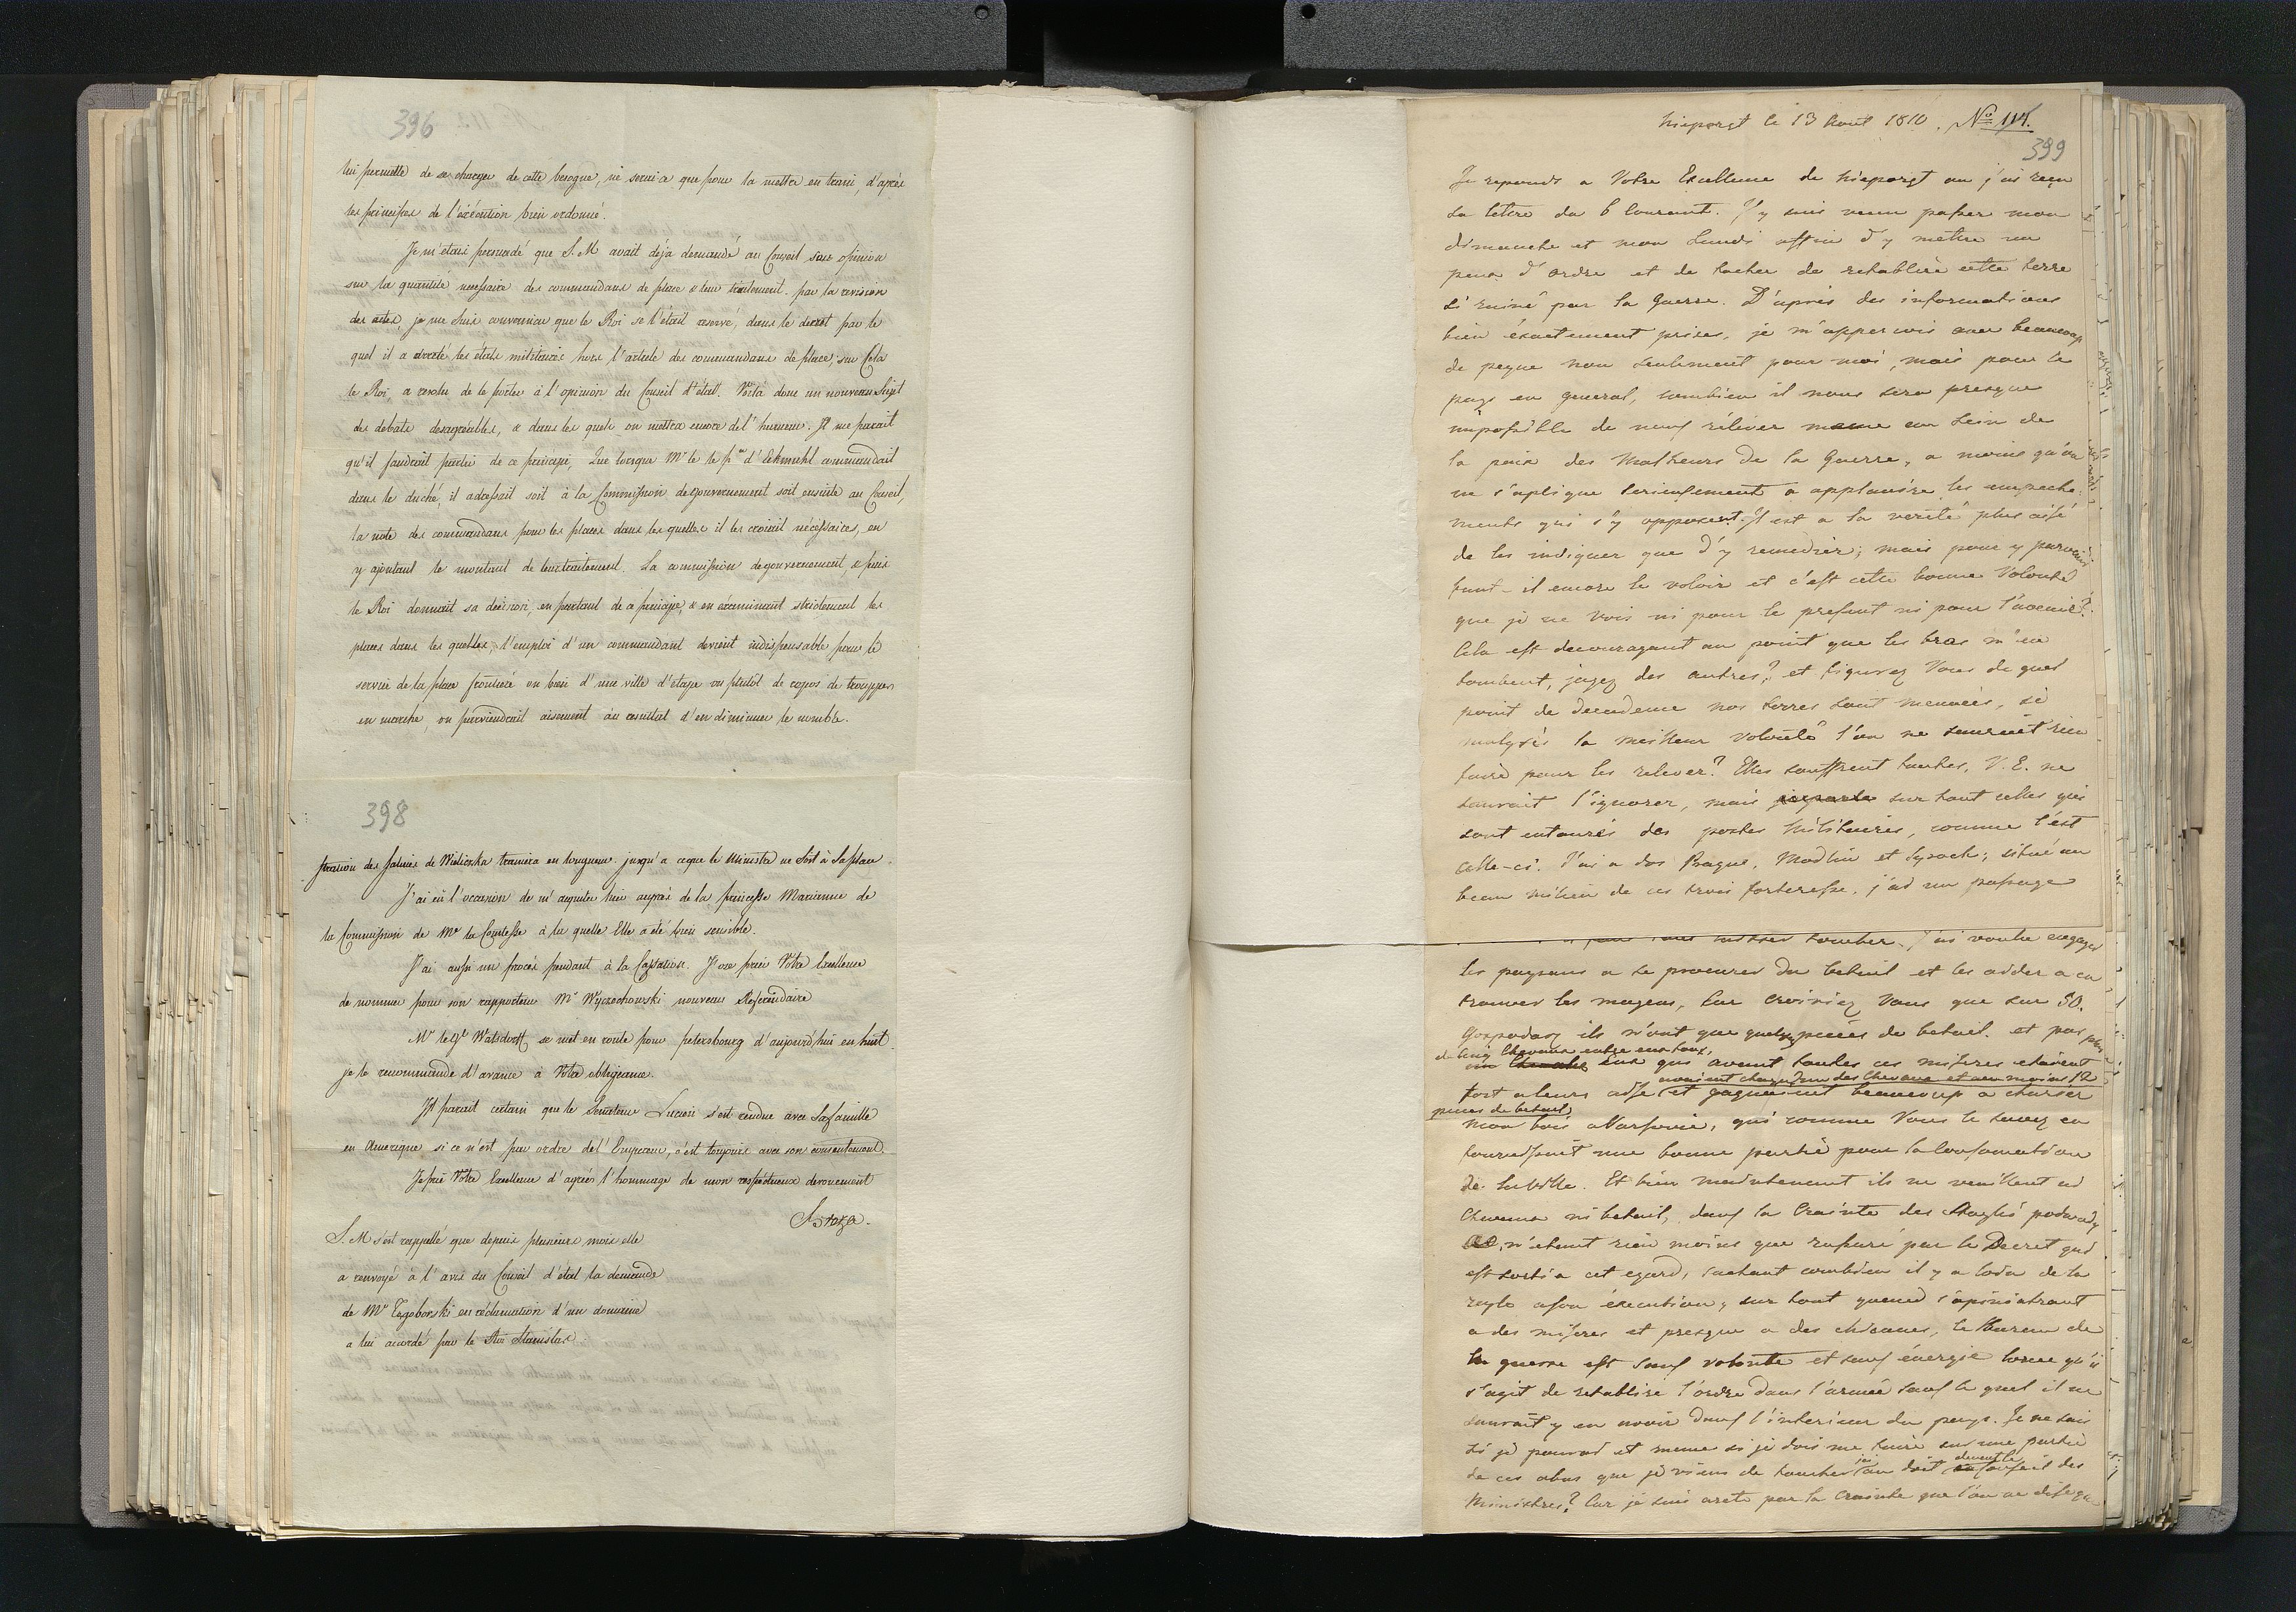 396
lui permette de se charger de cette besogne, ne servira que pour la mettre en train, d'après
les principes de l'exécution bien ordonné.
Je m'étais persuadé que S. M avait déja demandé au Conseil son opinion
sur la quantité necessaire des commandans de place & leur traitement. par la revision
des actes, je me suis convaincu que le Roi se l'était reservé, dans le decret par le
quel il a arreté les états militaires hors l'article des commandans de place; sur Cela
le Roi a resolu de le porter à l'opinion du Conseil d'état. Voilà donc un nouveau Sujet
des debats desagréables, & dans les quels on mettra encore de l'humeur. Il me parait
qu'il faudrait partir de ce principe, Que lorsque Mr le le pce d'Eckmuhl commandait
dans le duché, il adressait soit à la Commission de gouvernement soit ensuite au Conseil,
la note des commandans pour les places dans les quelles il les croirait nécessaires, en
y ajoutant le montant de leur traitement. La commission de gouvernement, & puis
le Roi donnait sa decision, en partant de ce principe & en examinant strictement les
places dans les quelles, l'emploi d'un commandant devient indispensable pour le
service de la place frontiere ou bien d'une ville d'etape ou plutôt de repos de trouppes
en marche, on parviendrait aisement au resultat d'en diminuer le nombre.
398
stration des salines de Wieliczka trainera en longueur jusqu'a ceque le Ministre ne Soit à Sa place.
J'ai eû l'occasion de m'aquiter hier auprès de la princesse Marianne de
la Commission de Me la Comtesse à la quelle Elle a été bien sensible.
J'ai aussi un procès pendant à la Cassation. J'ose prier Votre Excellence
de nommer pour son rapporteur Mr Wyczechowski nouveau Referendaire
Mr le Gl Watzdorff se met en route pour petersbourg d'aujourd'hui en huit
je le recommande d'avance à Votre obligeance.
Il parait certain que le Senateur Lucien s'est rendue avec Sa famille
en Amerique si ce n'est par ordre de l'Empereur, c'est toujours avec son consentement.
Je prie Votre Excellence d'agréer l'hommage de mon respectueux devouement
S. M s'est rappellé que depuis plusieurs mois elle
a renvoyé à l'avis du Conseil d'état la demande
de Mr Tęgoborski en réclamation d'un domaine
a lui accordé par le Roi Stanislas.
Nieporęt le 13 Aout 1810. No 114.
399
Je reponds a Votre Excellence de Nieporęt ou j'ai reçu
sa lettre du 6 Courant. J'y suis venu passer mon
dimanche et mon Lundi affin d'y mettre un
peu d'ordre et de tacher de retablire cette terre
si ruiné par la Guerre. D'après des informations
bien éxactement prises, je m'appercois avec beaucoup
de peyne non seulement pour moi, mais pour le
pays en general, combien il nous sera presque
impossible de nous reléver meme au sein de
la paix des Malheurs de la Guerre, a moins qu'on
ne s'aplique serieusement a applanire les empeche:
ments qui s'y opposent. Il est a la verité plus aisé
de les indiquer que d'y remedier; mais pour y parvenir
faut-il encore le voloir et c'est cette bonne Volonté
que je ne vois ni pour le present ni pour l'avenir?
Cela est decourageant au point que les bras m'en
tombent, jugez des autres? et figurez Vous de quel
point de decadence nos terres sont menacés, si
malgrés la meilleur Volonté l'on ne saurait rien
faire pour les relever? Elles souffrent toutes, V. E. ne
saurait l'ignorer, mais sur tout celles qui
sont entourés des postes Militaires, comme l'est
celle-ci. J'ai a dos Prague, Modlin et Syrock; situé au
beau milieu de ces trois forteresse, j'ai un passage
tomber. J'ai voulu engager
les paysans a se procurer du betail et les aider a en
trouver les moyens, Car croiriez Vous que sur 50.
Gospodarz ils n'ont que quelques pieces de betail. et pas plus
de cinq Chevaux entre eux tous,
eux qui avant toutes ces miseres etaient
avaient chacun des Chevaux et au moins 12
fort a leurs aise et gagnaient beaucoup a charier
pieces de betail,
mon bois a Varsovie, qui comme Vous le savez en
fournissait une bonne partie pour la Consomation
de la Ville. Et bien maintenant ils ne veuillent ni
Chevaux ni betail, dans la Crainte des
n'etant rien moins que rassuré par le Decret qui
est sorti a cet egard, sachant combien il y a loin de la
regle a son éxecution, sur tout quand s'opiniatrant
a des miseres et presque a des chicanes, le Bureau de
la guerre est sans volonte et sans énergie lorsqu'il
s'agit de retablire l'ordre dans l'armée sans le quel il ne
saurait y en avoir dans l'interieur du pays. Je ne sais
si je pourrai et meme si je dois me taire sur une partie
de ces abus que je viens de toucher ici devant le Conseil des
Ministres? Car je suis areté par la Crainte que l'on ne dise que